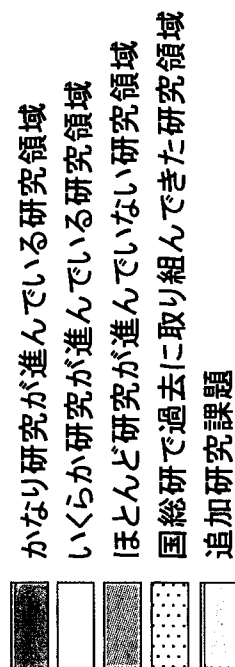 かなり研究が進んでいる研究領域
いくらか研究が進んでいる研究領域
ほとんど研究が進んでいない研究領域
国総研で過去に取り組んできた研究領域
追加研究課題